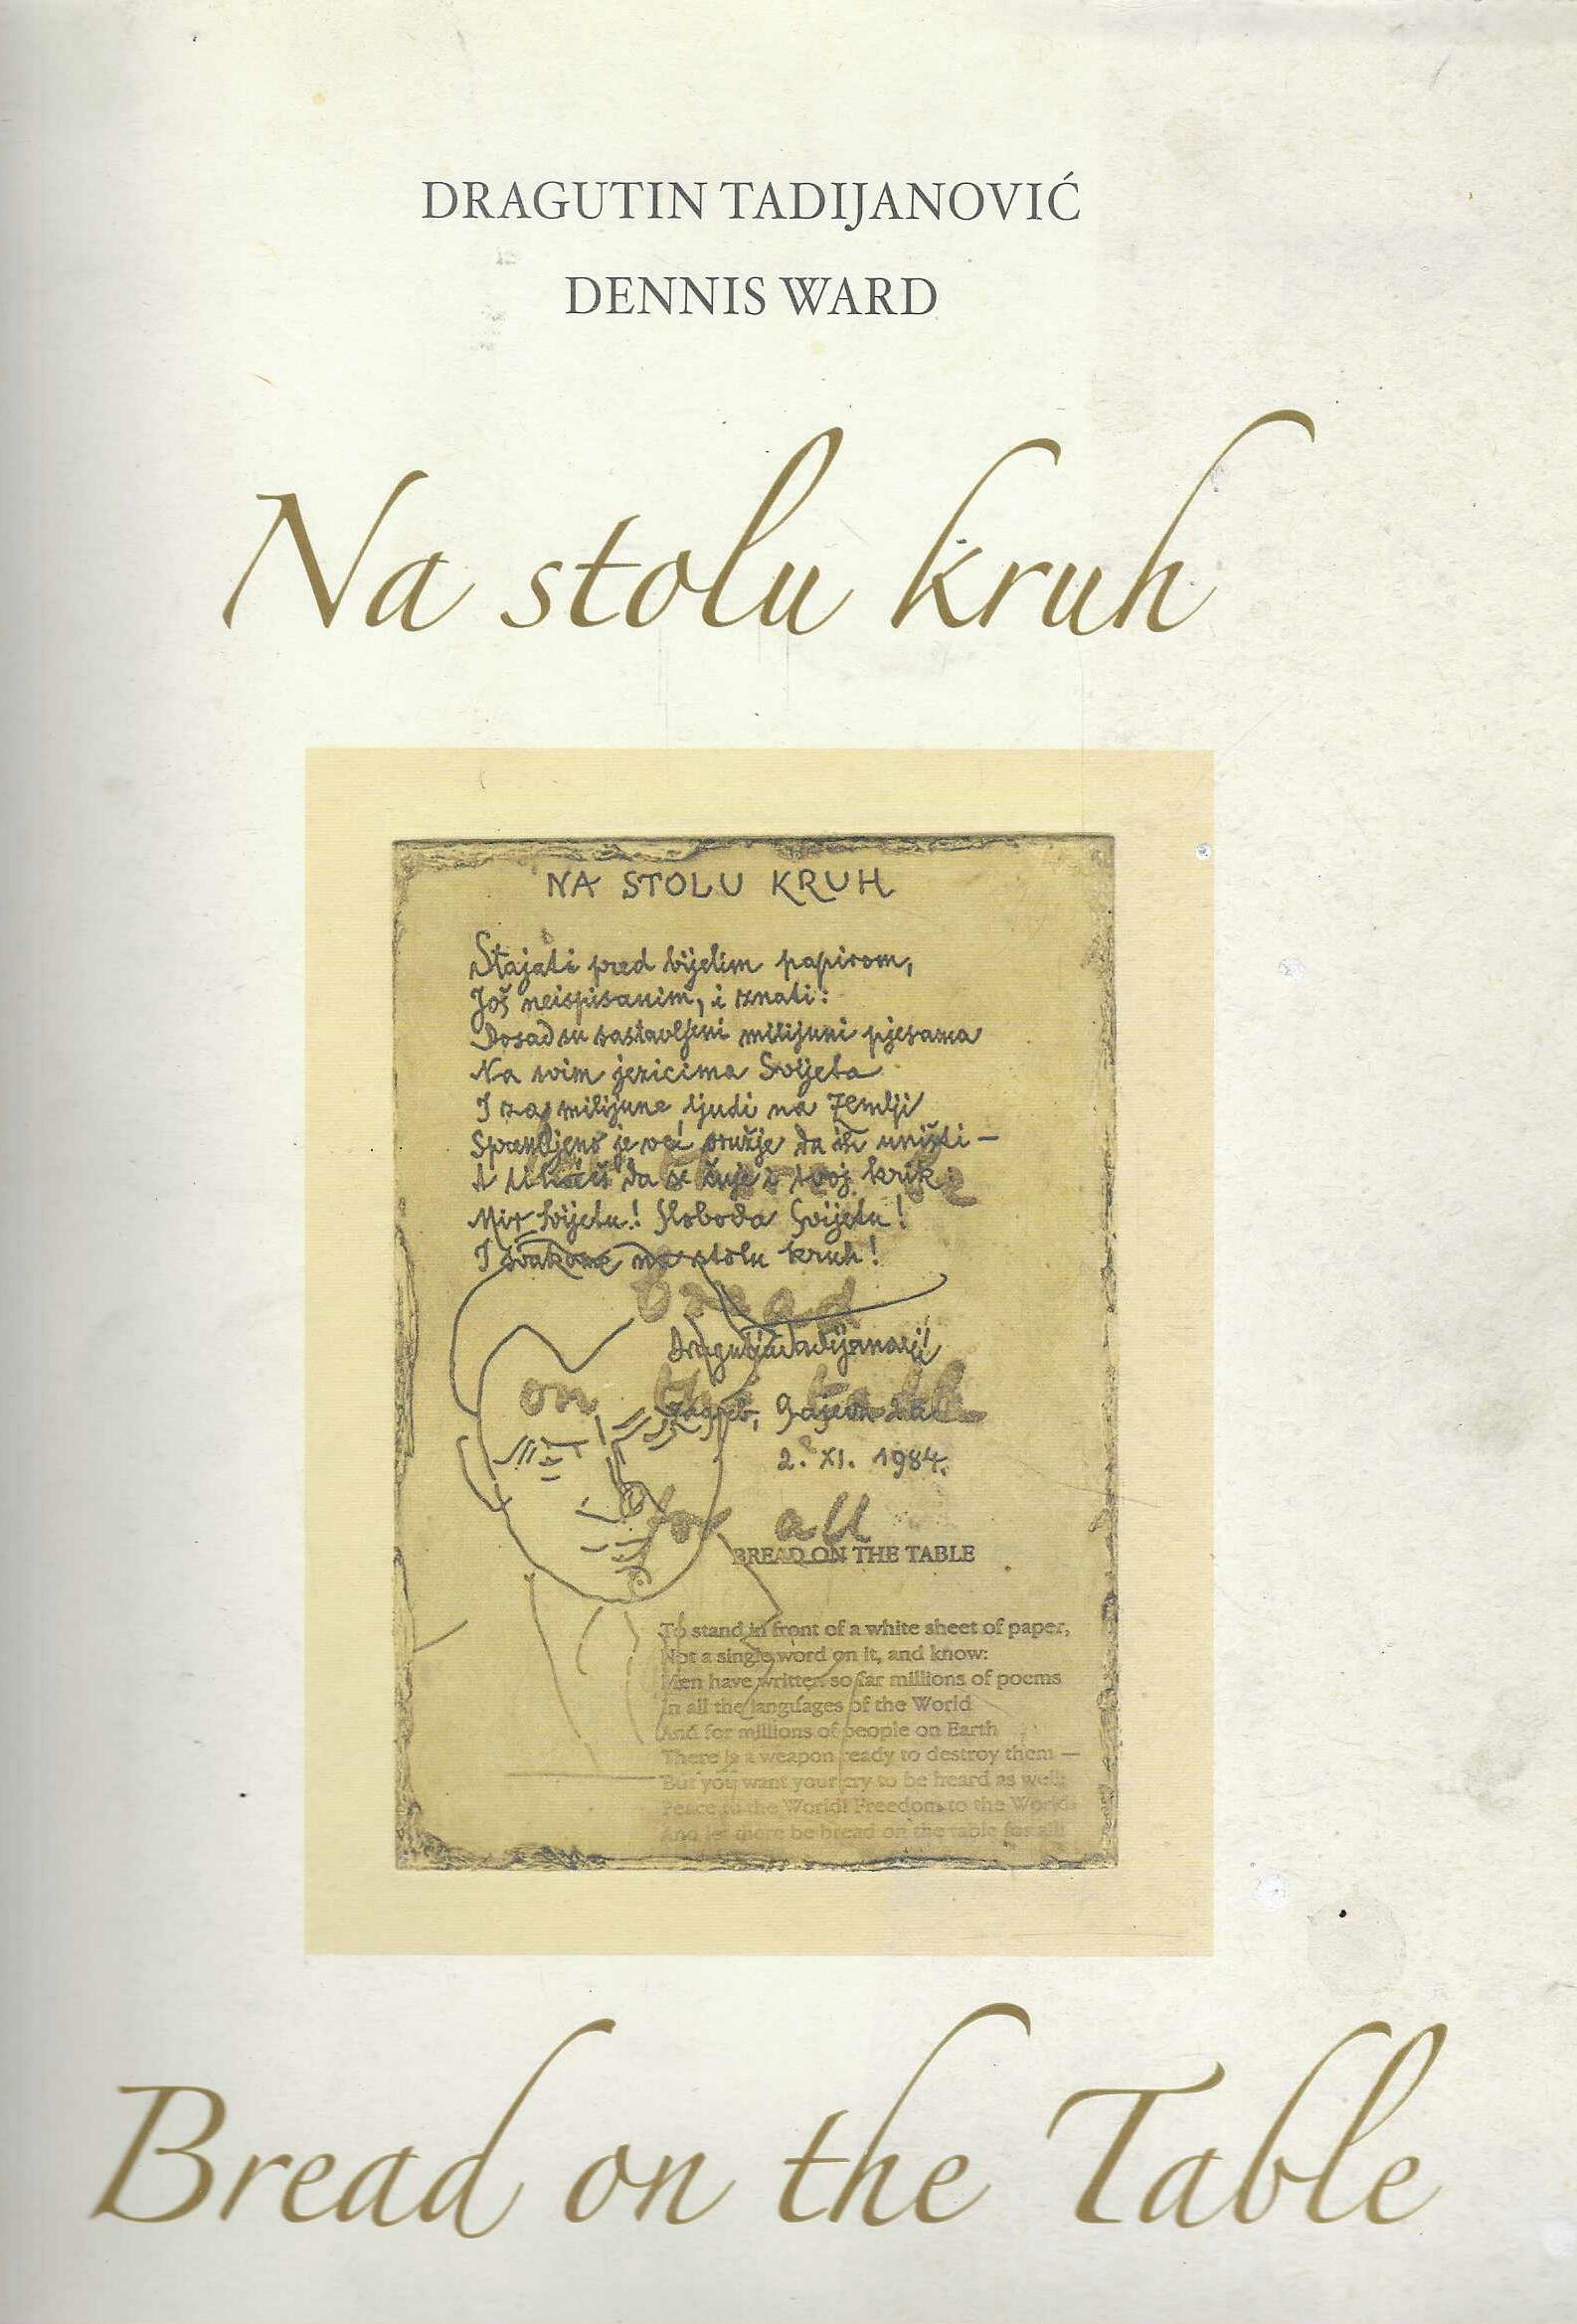 DRAGUTIN TADIJANOVIĆ
DENNIS WARD
Na stolu kruh
NA STOLU KRUH
Stajati pred bijelim papirom,
Još neispisanim, i znati:
Dosad su sastavljeni milijuni pjesama
Na svim jezicima Svijeta
I za milijune ljudi na Zemlji
Spremljeno je već oružje da ih uništi —
A ti hoćeš da se čuje i tvoj krik:
Mir Svijetu! Sloboda Svijetu!
I svakome na stolu kruh!
bread
Dragutin Tadijanović
on the table
Zagreb, Gajeva
2. XI. 1984.
for all
BREAD ON THE TABLE
To stand in front of a white sheet of paper,
Not a single word on it, and know:
Men have written so far millions of poems
In all the languages of the World
And for millions of people on Earth
There is a weapon ready to destroy them —
But you want your cry to be heard as well:
Peace to the World! Freedom to the World!
And let there be bread on the table for all!
Bread on the Table